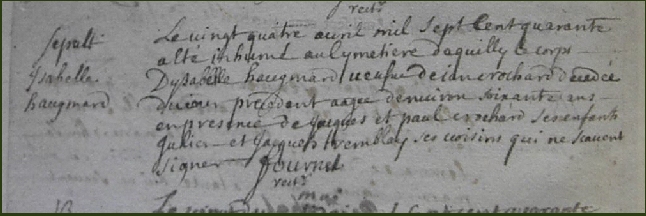 rectr
Sepult
Ysabelle
haugmard
Le vingt quatre avril mil sept Cent quarante
a été inhumé au Cymetiere daquilly le corps
Dysabelle haugmard veufue de ian crochard décédé
du jour précédent aagée denviron soixante ans
en presence de Jacques et paul crochard ses enfants
et Jacques tremblay ses voisins qui ne scavent
signer Journel
rectr
Le vingt du mai mil sept cent quarante